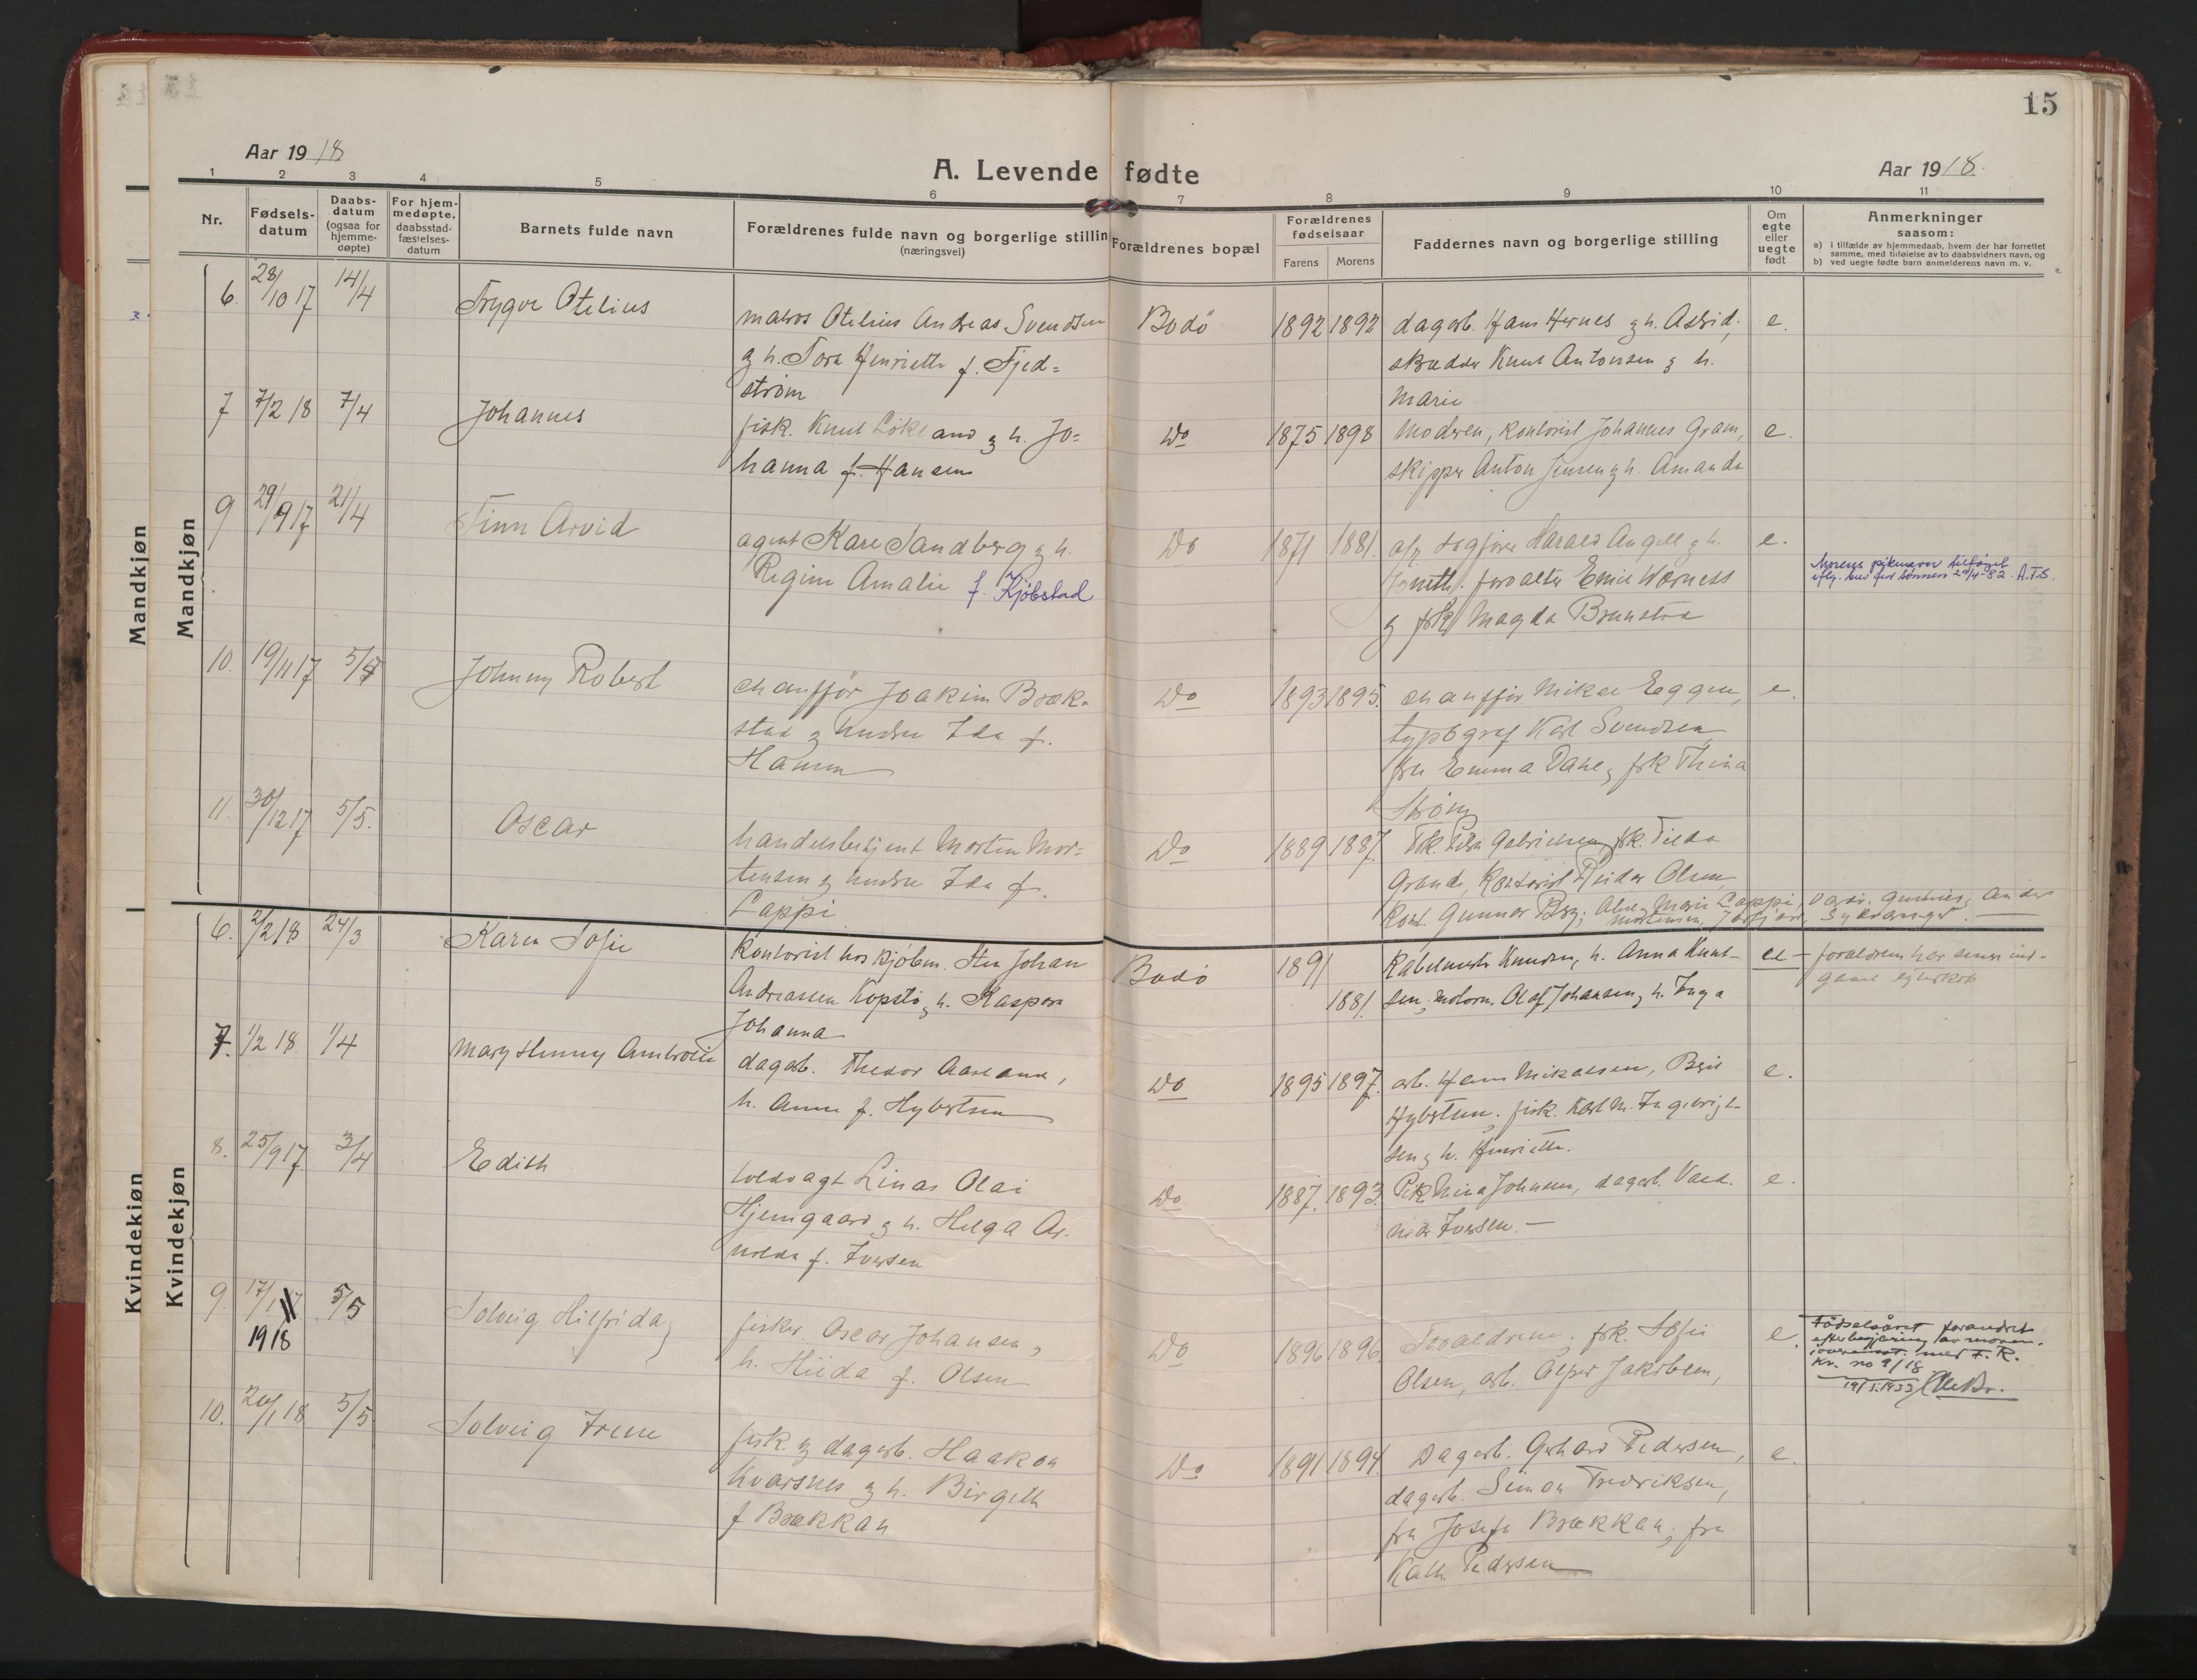 15
Aar 1918
A. Levende fødte
Aar 1918.
1 2 3 4 5 6 7 8 9 10 11
Nr.
Fødsels-
datum
Daabs-
datum
(ogsaa for
hjemme-
døpte)
For hjem-
medøpte,
daabsstad-
fæstelses-
datum
Barnets fulde navn
Forældrenes fulde navn og borgerlige stillin
(næringsvei)
Forældrenes bopæl
Forældrenes
fødselsaar
Farens
Morens
Faddernes navn og borgerlige stilling
Om
egte
eller
uegte
født
Anmerkninger
saasom:
a) i tilfælde av hjemmedaab, hvem der har forrettet
samme, med tilføielse av to daabsvidners navn, og
b) ved uegte fødte barn anmelderens navn m. v.
Mandkjøn
Mandkjøn
6. 28/10 17 14/4 Trygve Otelius
matros Otelius Andreas Svendsen
g h. Tora Henriette f. Fjed=
strøm
Bodö 1892 1892
dagarb. Hans Hernes g h. Astrid;
skrædder Knut Antonsen g h.
Marie
e.
7 7/2 18 7/4 Johannes
fisk. Knut Løkeland g h. Jo=
hanna f. Hansen
Do 1875 1898
Moderen, kontorist Johannes Gram,
skipper Anton Jensen g h. Amanda
e.
9 29/9 17 21/4 Finn Arvid
agent Kare Sandberg g h.
Regine Amalie f. Kjøbstad
Do 1871 1881.
Harald Angell g h.
forvalter Emil Wærness
g frk. Magda
e.
Morens pikenavn tilføyet
iflg. brev fra sønnen 29/4-82. A.T.S.
10. 19/11 17 5/5 Johnny Robert
chauffør Joakim Bræk-
stad g hustru Ida f.
Hansen
Do 1893 1895.
chauffør Mikal Eggen,
typograf Karl Svendsen
fru Emma Dahl, frk Thina
Strøm
e.
11. 30/12 17 5/5. Oscar
handelsbetjent Morten Mor=
tensen g hustru Ida f.
Lappi
Do 1889 1887.
Frk. Gabrielsen, frk. Tilda
kontorist Reidar Olsen
Kont. Gunnar Berg; Marie Lappi,
Mortensen,
Kvindekjøn
Kvindekjøn
6. 2/2 18 24/3 Karen Sofie
Kontorist hos kjøbm. Sten Johan
Andreassen Kopstø, h. Kaspara
Johanna
Bodø 1891
1881.
Kabelmester Knudsen, h. Anna Knut-
sen, motorm. Olaf Johansen, h. Inga
ue - forældrene har senere ind-
gaaet egteskab
7. 1/2 18 1/4 Mary Henny Ambrosie
dagarb. Thedor Aaseland,
h. Anna f. Hybertsen
Do 1895 1897.
arb. Hans Mikalsen, Beril
Hybertsen, fisk. Karl M. Ingebrigt-
sen g h. Henriette.
e.
8. 25/9 17. 3/4 Edith
toldvagt Linas Olai
Hjemgaard g h. Helga Ar-
nolda f. Iversen
Do 1887. 1893.
Pike Nina Johnsen, dagarb. Vald.
Iversen. —
e.
9 17/1 17 5/5 Solveig Hilfrida
1918
fisker Oscar Johansen,
h. Hilda f. Olsen
Do 1896 1896.
Forældrene, frk. Sofie
Olsen, arb. Jakobsen,
e.
Fødselsåret forandret
efter begjæring av moren.
i overensst. med F. R.
Kv. no 9/18
19/5.1933
10. 20/1 18 5/5 Solveig Irene
fisk. g dagarb. Haakon
Kvarsnes g h. Birgith
f Brækkan
Do 1891 1894.
Dagarb. Gerhard Pedersen,
dagarb. Simon Fredriksen,
fru Josefa Brækkan, fru
Kath. Pedersen
e.